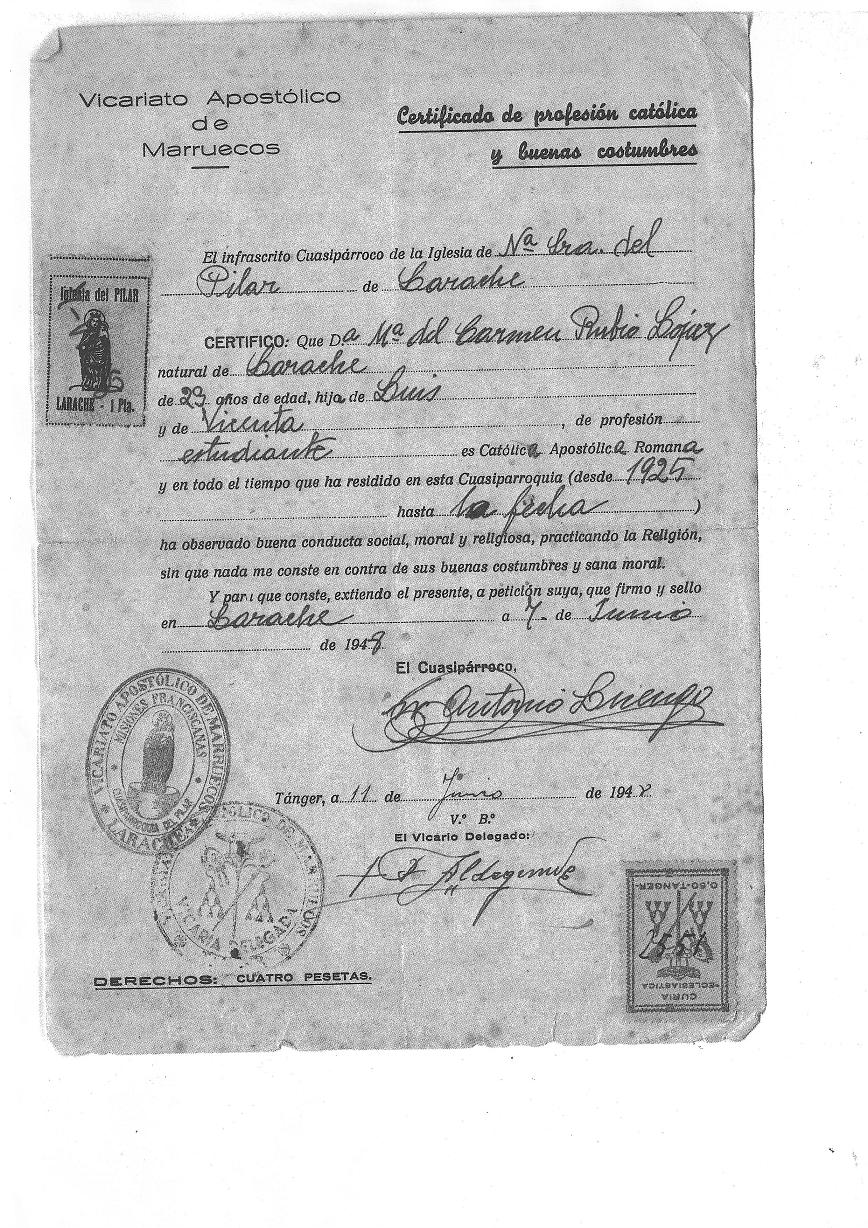 Vicariato Apostólico
de
Marruecos
Certificado de profesión católica
y buenas costumbres
El infrascrito Cuasipárroco de la Iglesia de Nª Sra. del
Pilar de Larache
Iglesia del PILAR
LARACHE - 1 Pta.
CERTIFICO: Que D.a Mª del Carmen Rubio López
natural de Larache
de 23 años de edad, hija de Luis
y de Vicenta, de profesión
estudiante es Católica Apostólica Romana
y en todo el tiempo que ha residido en esta Cuasiparroquia (desde 1925
hasta la fecha)
ha observado buena conducta social, moral y religiosa, practicando la Religión,
sin que nada me conste en contra de sus buenas costumbres y sana moral.
Y para que conste, extiendo el presente, a petición suya, que firmo y sello
en Larache a 7 de Junio
de 1948
El Cuasipárroco,
Fr Antonio Luengo
VICARIATO APOSTÓLICO DE MARRUECOS
MISIONES FRANCISCANAS
CUASIPARROQUIA DEL PILAR
LARACHE
Tánger, a 11 de Junio de 1948
V.º B.º
El Vicario Delegado:
VICARIA DELEGADA
DERECHOS: CUATRO PESETAS.
0,50-TANGER
CURIA
ECLESIASTICA